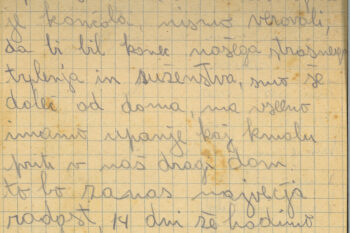 je končola, nismo verovali,
da bi bil konec našega strašnega
trplenja in suženstva, smo še
daleč od doma, ma vseeno
imamo upanje koj kmalu
priti v naš dragi dom
to bo za nas največja
radost, 14 dni že hodimo